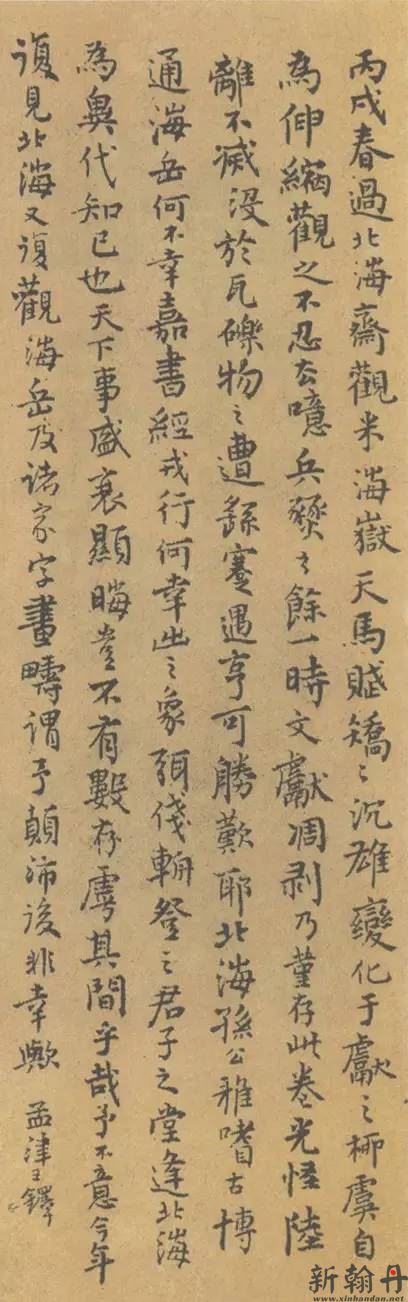 丙戌春過北海齋觀米海嶽天馬賦矯〻沉雄變化于獻之柳虞自
為伸縮觀之不忍去噫兵燹之餘一時文獻凋剥乃堇存此卷光怪陸
離不滅沒於瓦礫物之遭繇蹇遇亨可勝歎耶北海孫公雅嗜古博
通海岳何不幸嘉書經戎行何幸出之象弭俴輈登之君子之堂逢北海
為異代知已也天下事盛衰顯晦豈不有數存虖其間乎哉予不意今年
復見北海又復觀海岳及諸家字畫疇謂予顛沛後非幸歟 孟津王鐸
新翰丹
www.xinhandan.net